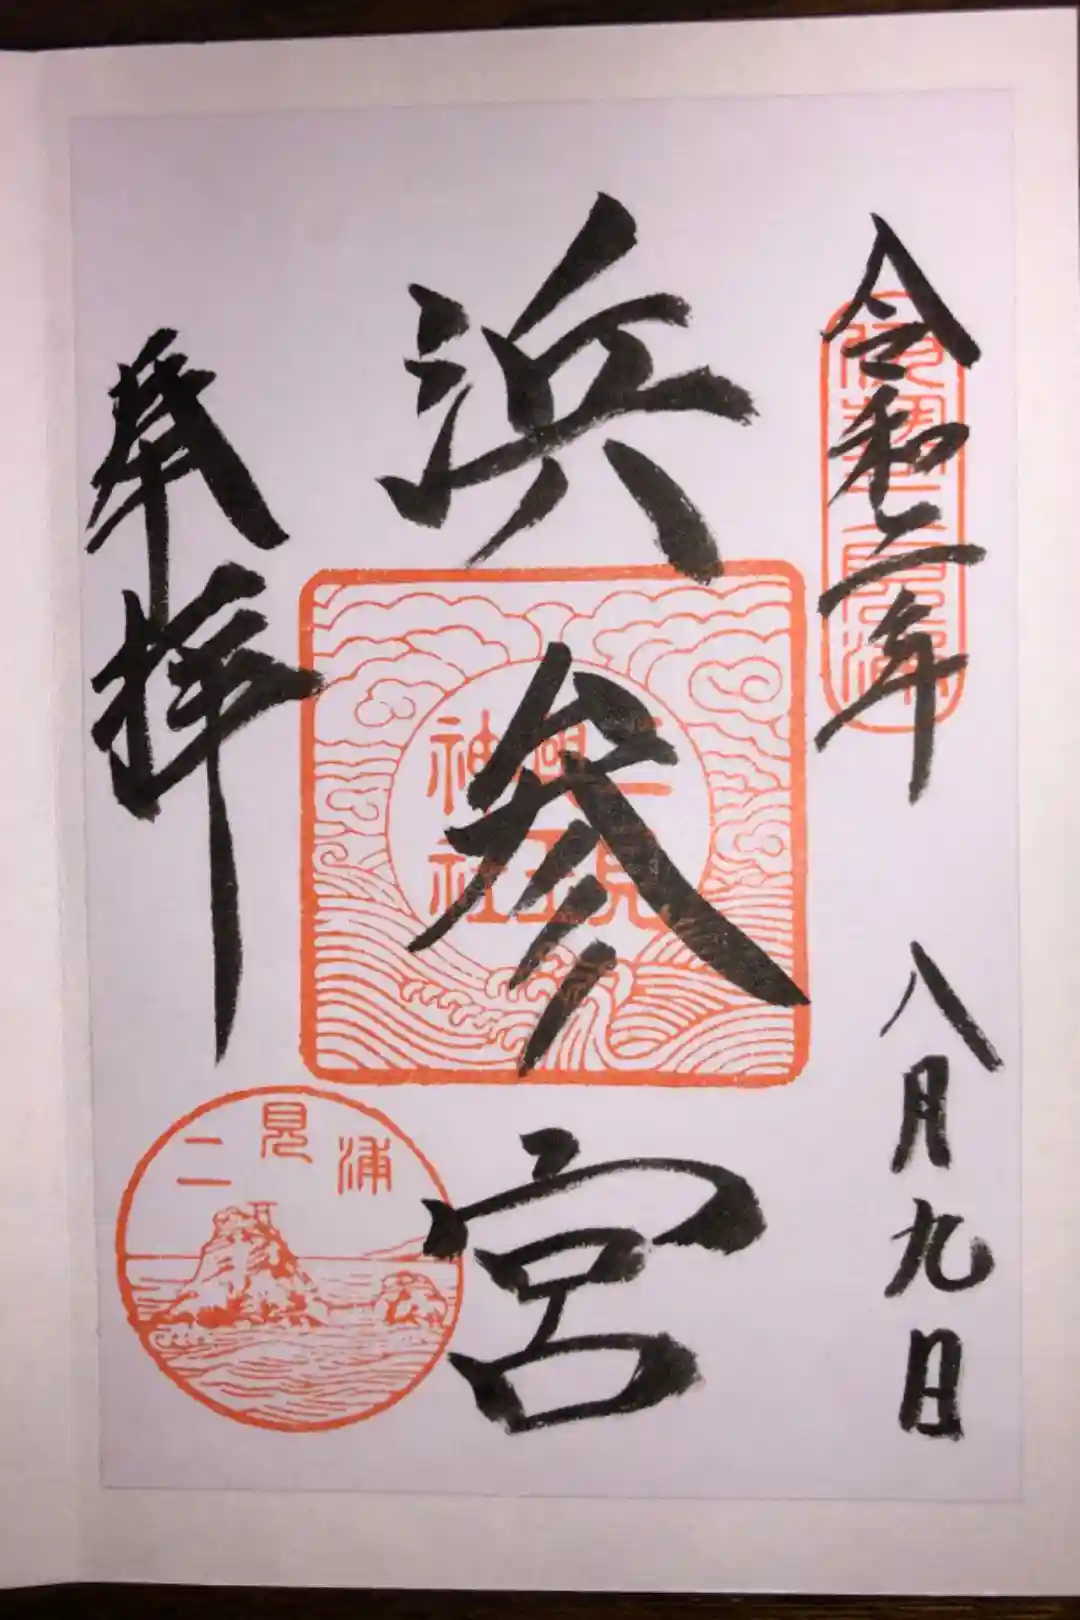 令和二年
八月九日
伊勢二見浦
浜参宮
二見
興玉
神社
奉拝
二見浦